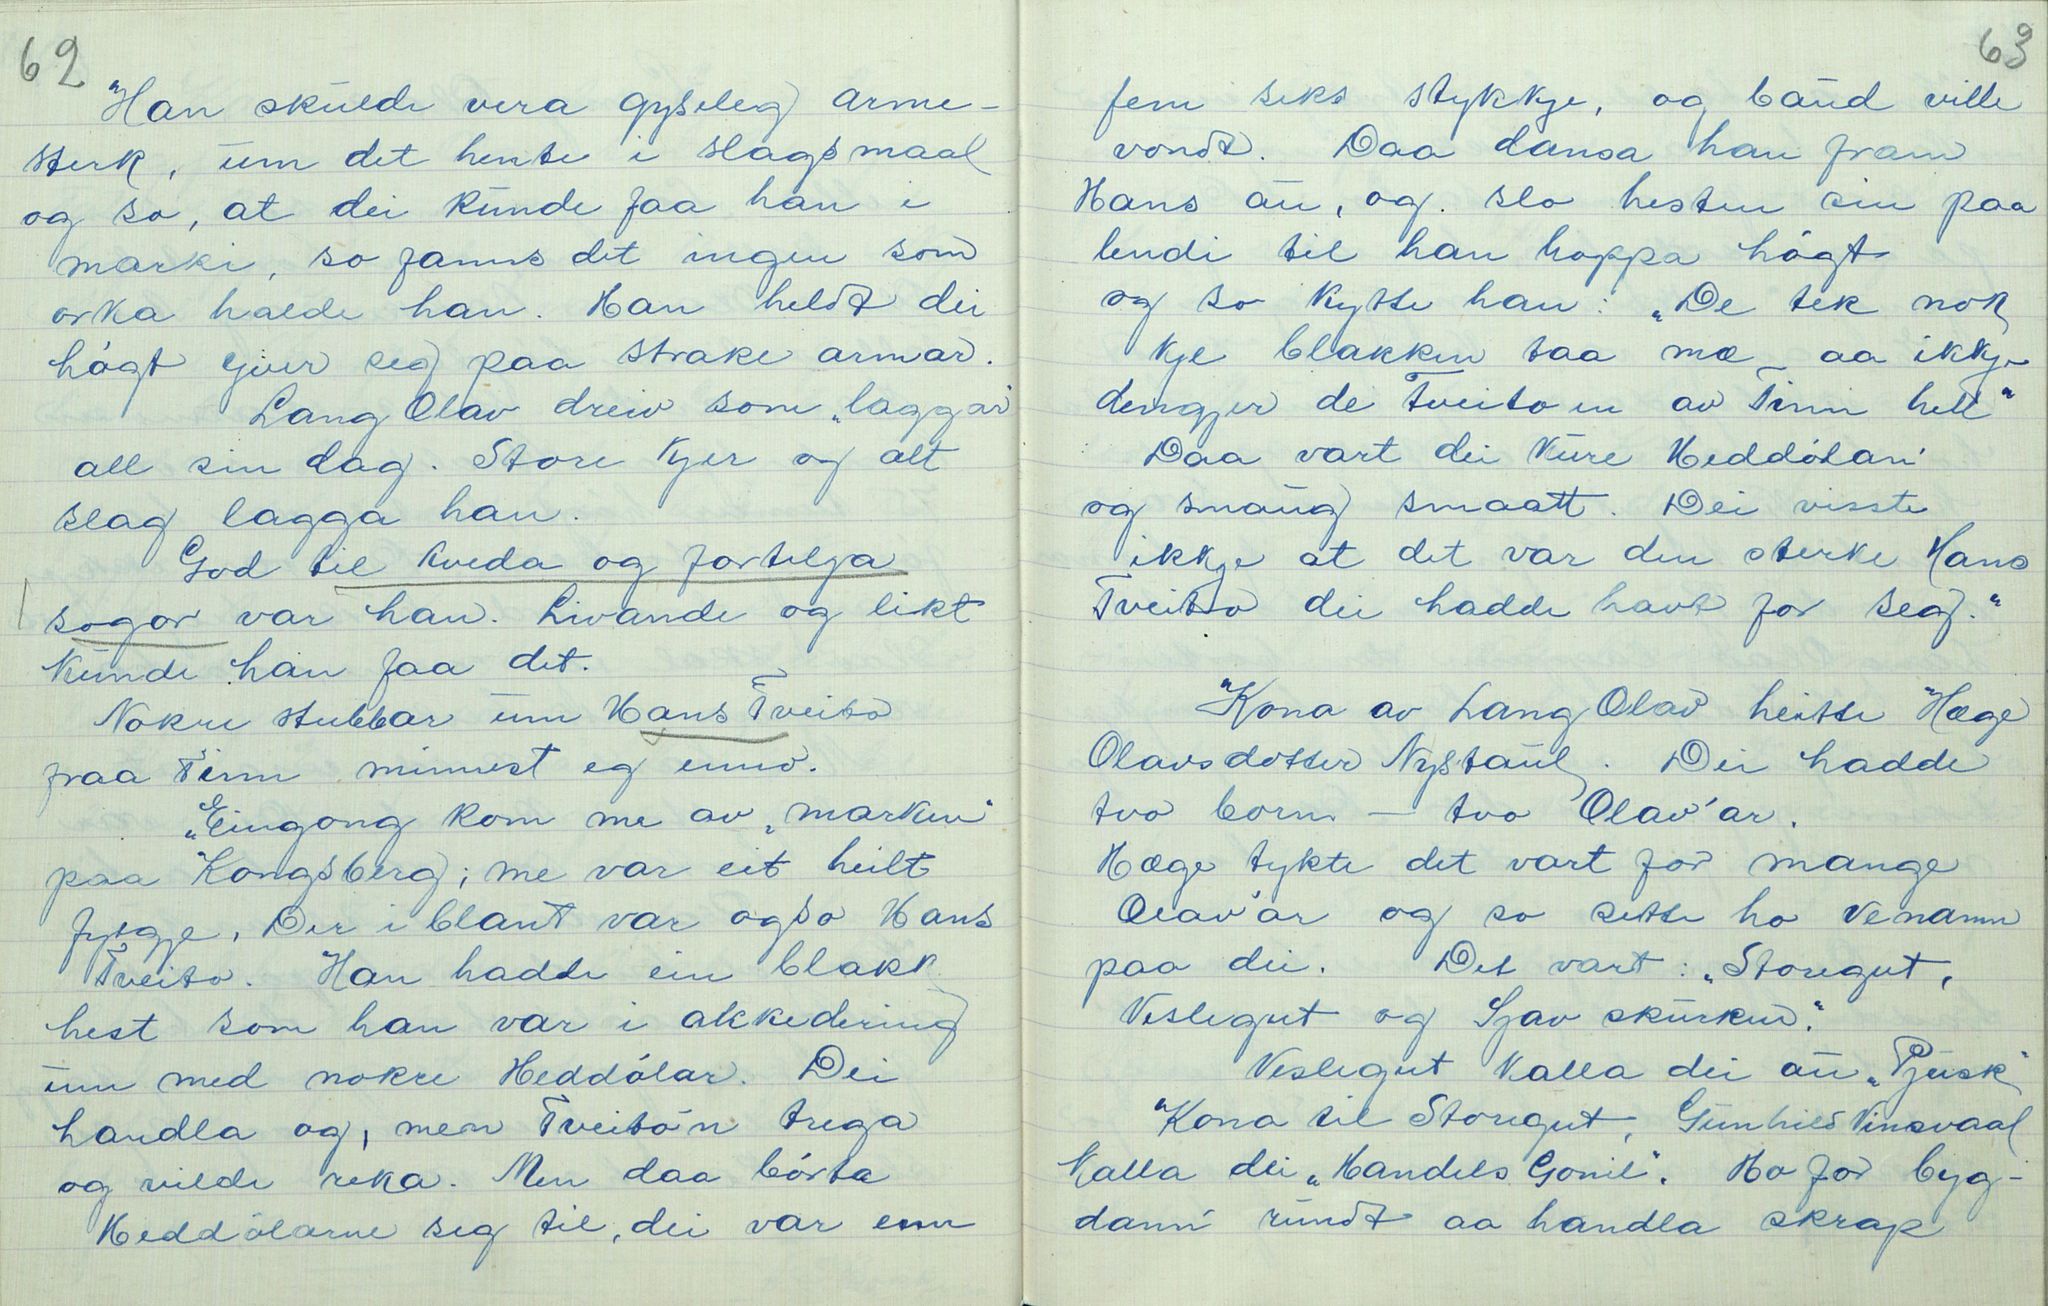 62
"Han skulde vera gyseleg arme-
sterk, um det hente i slagsmaal
og so, at dei kunde faa han i
marki, so fanns det ingen som
orka halde han. Han heldt dei
högt yver seg paa strake armar.
Lang Olav dreiv som "laggar"
all sin dag. Store kjer og alt
slag lagga han.
God til kveda og fortelja
sogor var han. Livande og likt
kunde han faa det.
Nokre stubbar um Hans Tveito
fraa Tinn minnest eg enno.
"Eingong kom me av "marken"
paa Kongsberg; me var eit heilt
fygje. Der i blant var ogso Hans
Tveito. Han hadde ein blakk
hest som han var i akkedering
um med nokre Heddölar. Dei
handla og, men Tveito'n trega
og vilde reka. Men daa börta
Heddölarne seg til, dei var enn
63
fem seks stykkje, og baud ville
vondt. Daa dansa han fram
Hans au, og slo hesten sin paa
lendi til han hoppa högt
og so kytte han: "De tek nok
kje blakken taa mæ aa ikkje
dengjer de Tveitoen av Tinn hell"
Daa vart dei kure Heddölan'
og smaug smaatt. Dei visste
ikkje at det var den sterke Hans
Tveito dei hadde havt for seg."
"Kona av Lang Olav heitte Hæge
Olavsdotter Nystaul. Dei hadde
tvo born - tvo Olav'ar.
Hæge tykte det vart for mange
Olav'ar og so sette ho venamn
paa dei. Det vart: "Storegut,
Veslegut og Gjav skurken."
Veslegut kalla dei au "Pjusk"
"Kona til Storegut, Gunhild Vinsvaal
kalla dei "Handels Gonil". Ho for byg-
dann' rundt aa handla skrap